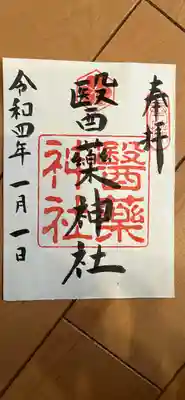 奉拝
醫藥神社
醫藥
神社
令和四年一月一日